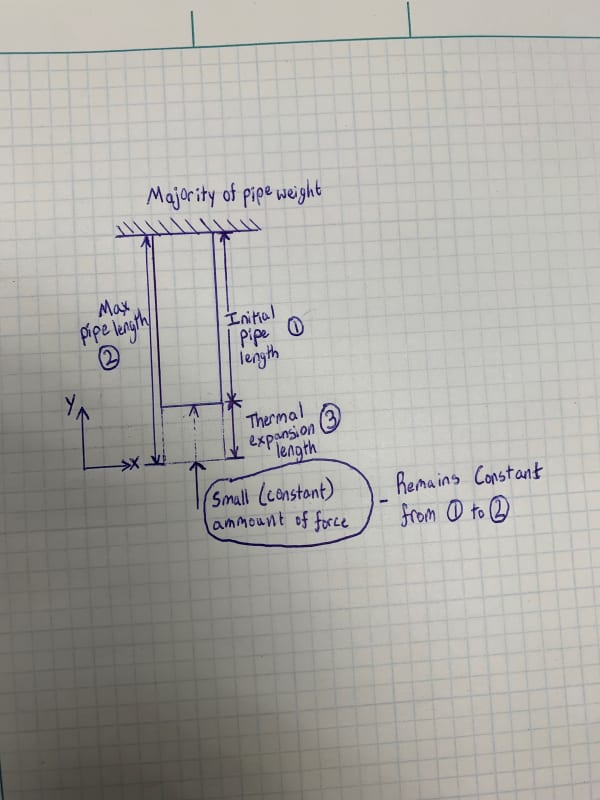 Majority of pipe weight
Max
pipe length
②
Initial
pipe ①
length
Y
X
Thermal ③
expansion
length
Small (constant)
ammount of force
- Remains Constant
from ① to ②